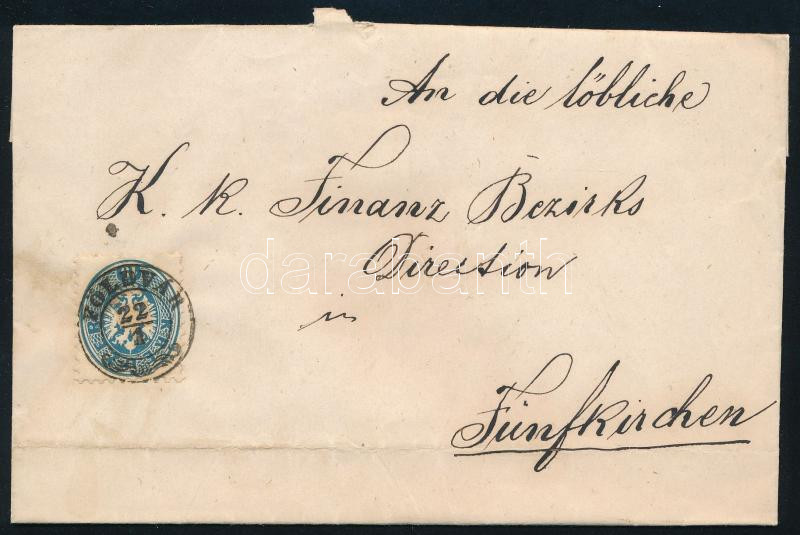 An die löbliche
K. k. Finanz Bezirks
Direction
in
Fünfkirchen
22
darabanth